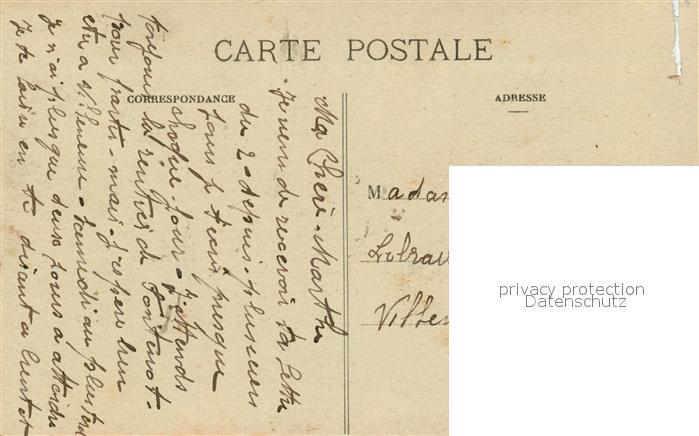 CARTE POSTALE
CORRESPONDANCE
ADRESSE
Ma Chère Marthe
Je viens de recevoir ta lettre
du 2 - depuis plusieurs
jours je t'écris presque
chaque jour - j'attends
toujours la rentrée de
pour partir - mais j'espère bien
être à Villeneuve - samedi au plus tard
Je n'ai plus que deux jours à attendre
Je te laisse en te disant à bientôt
Madam
Ville
privacy protection
Datenschutz